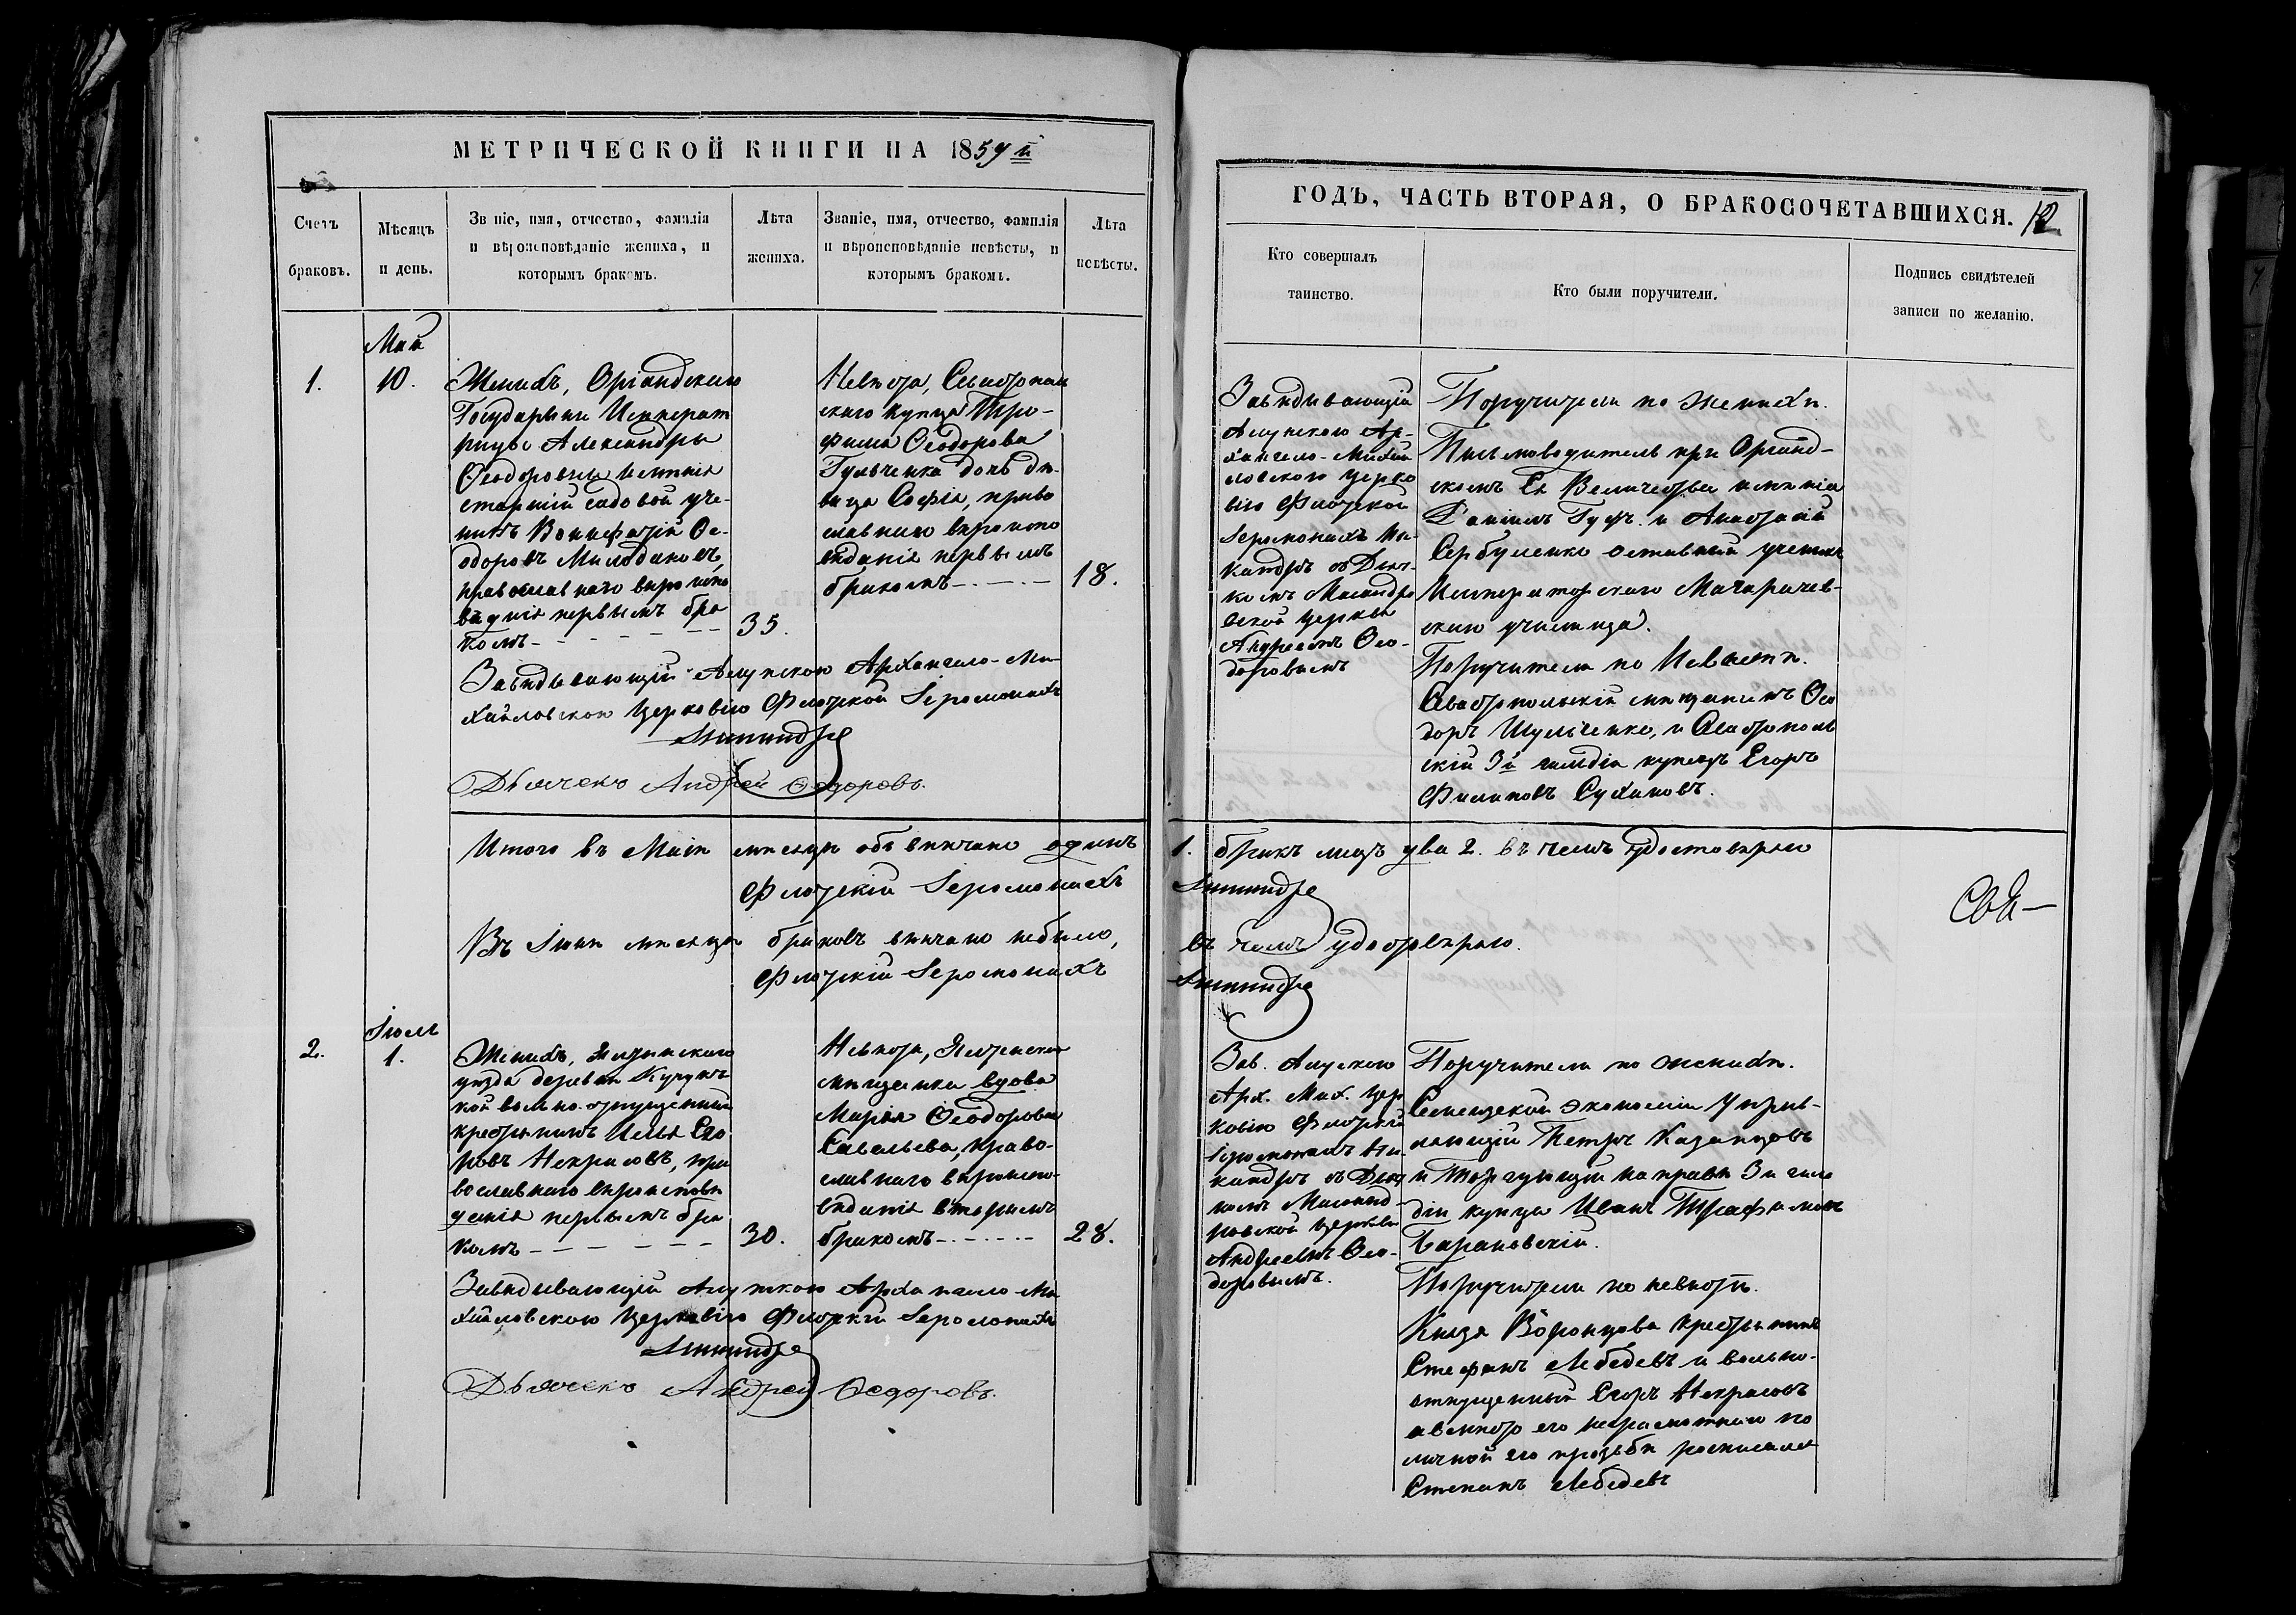 МЕТРИЧЕСКОЙ КНИГИ НА 1859 й
Счетъ
браковъ.
Мѣсяцъ
и день.
Званіе, имя, отчество, фамилія
и вѣроисповѣданіе жениха, и
которымъ бракомъ.
Лѣта
жениха.
Званіе, имя, отчество, фамилія
и вѣроисповѣданіе невѣсты, и
которымъ бракомъ.
Лѣта
невѣсты.
1.
Май
10.
Женихъ, Оріандскаго
Государыни Императ
рицы Александры
Ѳеодоровны имѣнія
старшій садовой уче-
никъ Вонифатій Ѳе-
одоровъ Милодановъ,
православнаго вѣроиспо
вѣданія первымъ бра
комъ - - - - - -
35.
Невѣста, Севастополь
скаго купца Тро-
фима Ѳеодорова
Гульченка дочь дѣ-
вица Софія, право
славнаго вѣроиспо
вѣданія первымъ
бракомъ - . - . -
18.
Завѣдывающій Алупскою Архангело-Ми-
хайловскою Церковію Флотской Іеромонахъ
Никандръ
Дьячекъ Андрей Ѳедоровъ.
Итого въ Маіи мѣсяцѣ обвѣнчано одинъ
Флотскій Іеромонахъ
Въ Іюнѣ мѣсяцѣ браковъ вѣнчано небыло,
Флотскій Іеромонахъ
2.
Іюль
1.
Женихъ, Ялтинскаго
уѣзда деревни Кучукъ
кой вольно-отпущенный
крестьянинъ Илья Его
ровъ Некрасовъ, пра
вославнаго вѣроисповѣ
данія первымъ бра
комъ - - - - - -
30.
Невѣста, Ялтинская
мѣщанка вдова
Марія Ѳеодорова
Савельева, право-
славнаго вѣроиспо-
вѣданія вторымъ
бракомъ - . - . - . -
28.
Завѣдывающій Алупскою Архангело-Ми
хайловскою Церковію Флотскій Іеромонахъ
Никандръ
Дьячекъ Андрей Ѳедоровъ.
ГОДЪ, ЧАСТЬ ВТОРАЯ, О БРАКОСОЧЕТАВШИХСЯ. 12
Кто совершалъ
таинство.
Кто были поручители.
Подпись свидѣтелей
записи по желанію.
Завѣдывающій
Алупскою Ар-
хангело-Михай
ловскою Церко
вію Флотской
Іеромонахъ Ни-
кандръ съ Дьяч-
комъ Масандро
вской Церкви
Андреемъ Ѳео-
доровымъ
Поручители по женихѣ.
Письмоводитель при Оріанд-
скомъ Ея Величества имѣніи
Даніилъ и Анастасій
Сербуленко оставный ученикъ
Императорскаго Магарачев-
скаго училища.
Поручители по Невѣстѣ.
Севастопольскій мѣщанинъ Ѳео
доръ Шульченко, и Севастополь
скій 3й гильдіи купецъ Егоръ
Филиповъ Сухановъ.
1. бракъ лицъ два 2. въ чемъ удостовѣряю
Никандръ
въ чемъ удостовѣряю.
Никандръ
Зав. Алупскою
Арх. Мих. Цер
ковію Флотскій
Іеромонахъ Ни
кандръ съ Дьяч
комъ Масанд-
ровской Церкви
Андреемъ Ѳео-
доровымъ.
Поручители по женихѣ.
экономіи Управ-
ляющій Петръ Казанцовъ
и Торгующій на правѣ 3й гиль
діи купца Иванъ Трафимовъ
Барановскій.
Поручители по невѣстѣ.
Князя Воронцова крестьянинъ
Стефанъ Лебедевъ и вольно-
отпущенный Егоръ Некрасовъ
авмѣсто его неграмотнаго по
личной его прозьбѣ росписался
Степанъ Лебедевъ